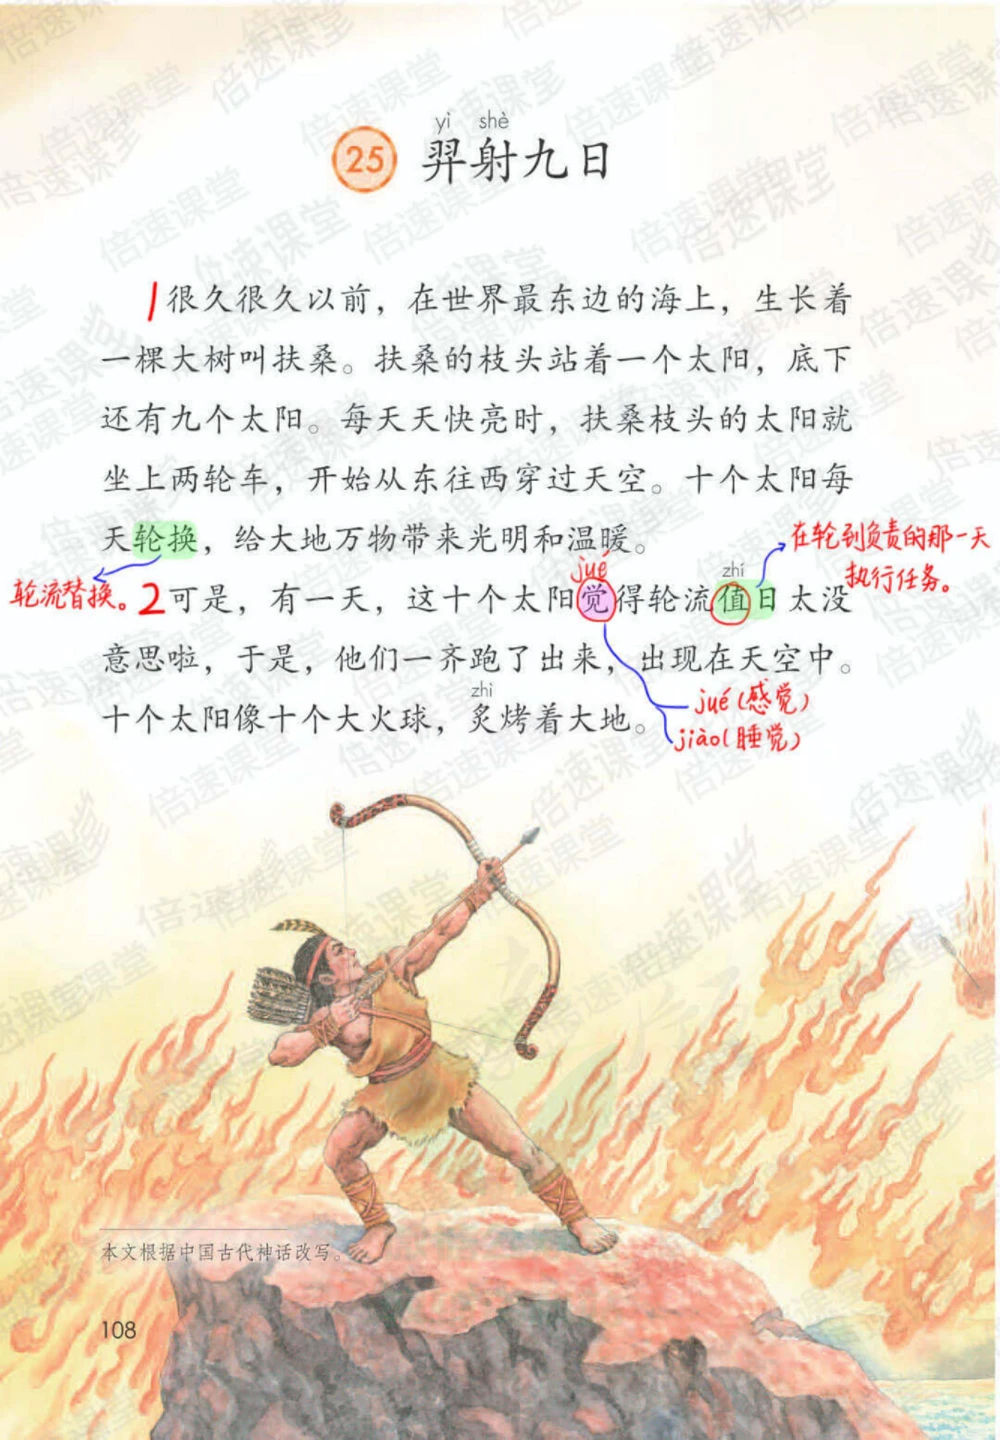 yì shè
25 羿射九日
1 很久很久以前，在世界最东边的海上，生长着
一棵大树叫扶桑。扶桑的枝头站着一个太阳，底下
还有九个太阳。每天天快亮时，扶桑枝头的太阳就
坐上两轮车，开始从东往西穿过天空。十个太阳每
天轮换，给大地万物带来光明和温暖。
在轮到负责的那一天
执行任务。
轮流替换。
jué zhí
2 可是，有一天，这十个太阳觉得轮流值日太没
意思啦，于是，他们一齐跑了出来，出现在天空中。
zhì
十个太阳像十个大火球，炙烤着大地。
jué（感觉）
jiào（睡觉）
本文根据中国古代神话改写。
108
倍速课堂